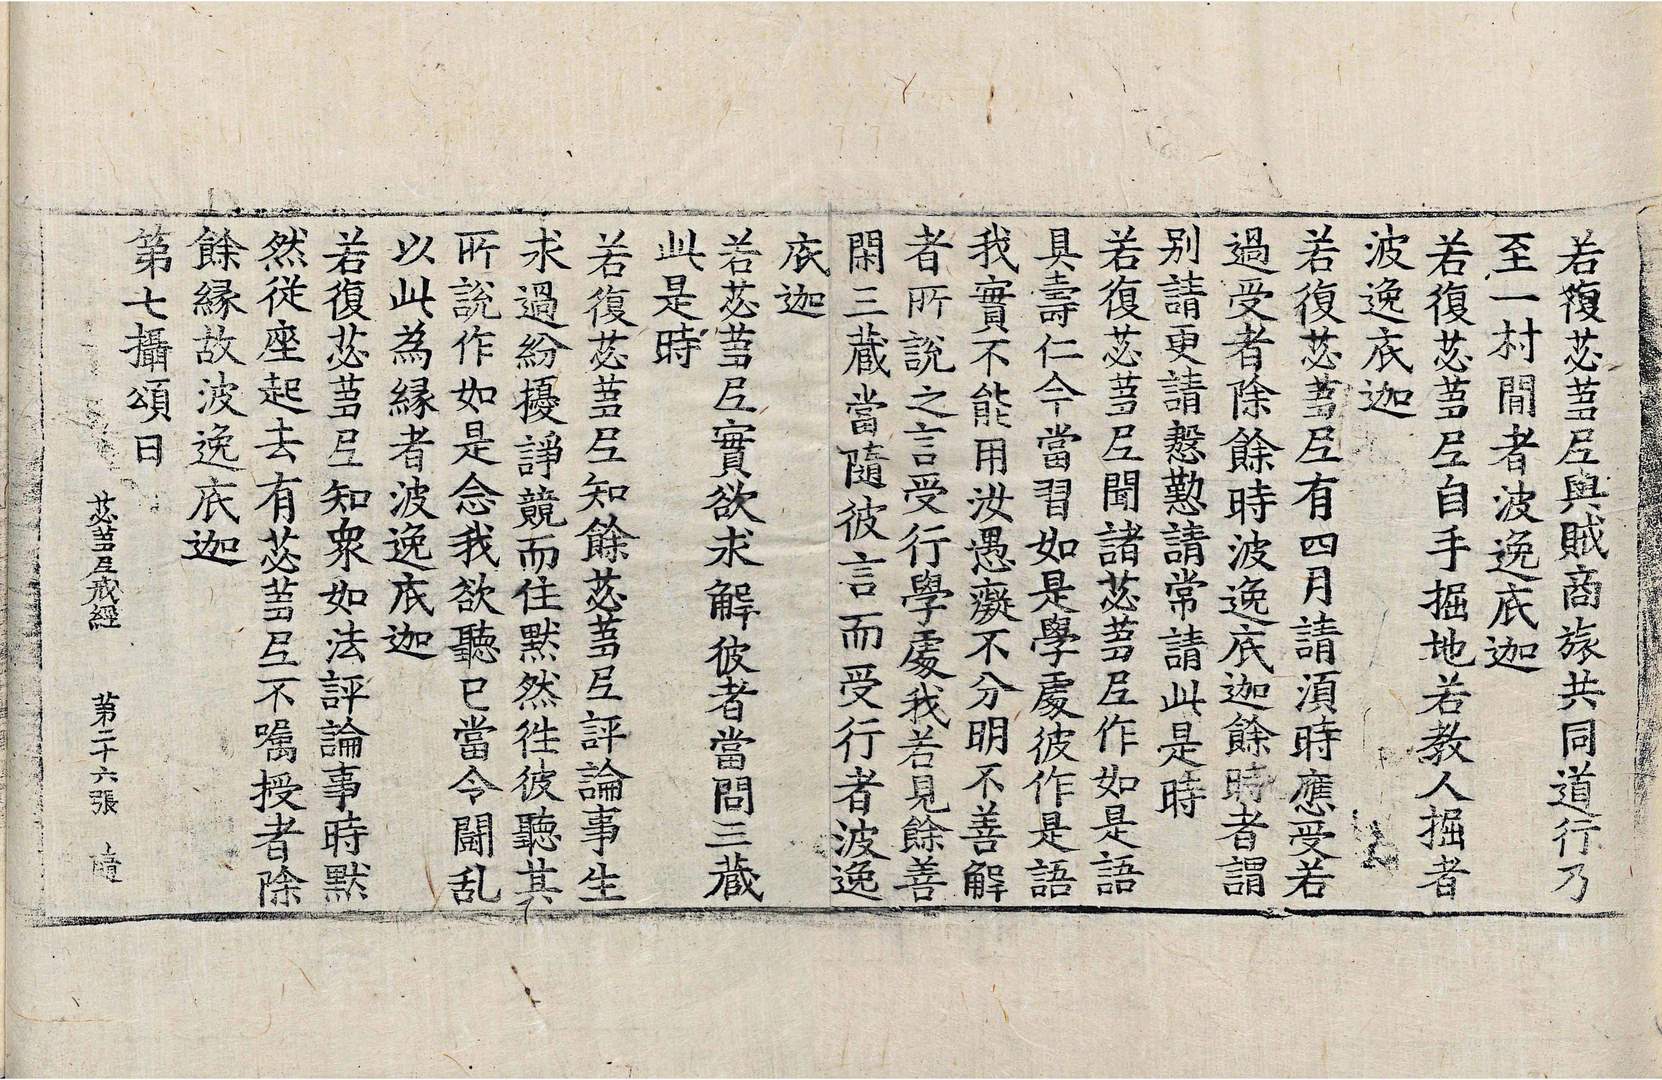 若復苾蒭尼與賊商旅共同道行乃
至一村間者波逸底迦
若復苾蒭尼自手掘地若教人掘者
波逸底迦
若復苾蒭尼有四月請須時應受若
過受者除餘時波逸底迦餘時者謂
別請更請慇懃請常請此是時
若復苾蒭尼聞諸苾蒭尼作如是語
具壽仁今當習如是學處彼作是語
我實不能用汝愚癡不分明不善解
者所說之言受行學處我若見餘善
閑三藏當隨彼言而受行者波逸
底迦
若苾蒭尼實欲求解彼者當問三藏
此是時
若復苾蒭尼知餘苾蒭尼評論事生
求過紛擾諍競而住默然往彼聽其
所說作如是念我欲聽已當令鬪乱
以此為緣者波逸底迦
若復苾蒭尼知衆如法評論事時默
然從座起去有苾蒭尼不囑授者除
餘緣故波逸底迦
第七攝頌曰
苾蒭尼戒經 第二十六張 隨